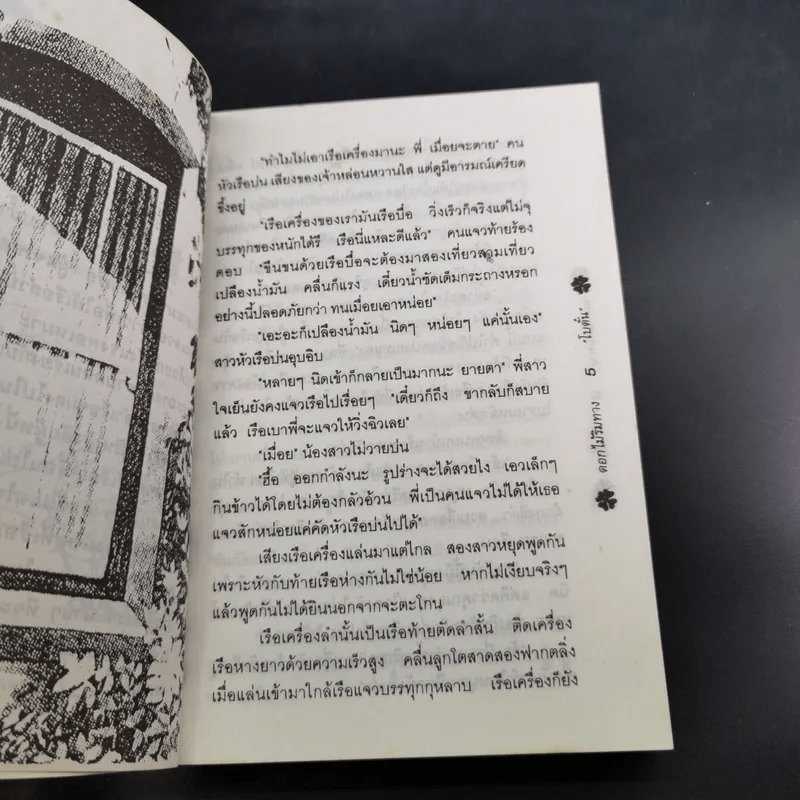 "ทำไมไม่เอาเรือเครื่องมานะ พี่ เมื่อยจะตาย" คน
หัวเรือบ่น เสียงของเจ้าหล่อนหวานใส แต่ดูมีอารมณ์เครียด
ขึ้งอยู่
"เรือเครื่องของเรามันเรือบื่อ วิ่งเร็วก็จริงแต่ไม่จุ
บรรทุกของหนักได้รึ เรือนี่แหละดีแล้ว" คนแจวท้ายร้อง
ตอบ "ขืนขนด้วยเรือบื่อจะต้องมาสองเที่ยวสามเที่ยว
เปลืองน้ำมัน คลื่นก็แรง เดี๋ยวน้ำซัดเต็มกระถางหรอก
อย่างนี้ปลอดภัยกว่า ทนเมื่อยเอาหน่อย"
"เอะอะก็เปลืองน้ำมัน นิดๆ หน่อยๆ แค่นั้นเอง"
สาวหัวเรือบ่นอุบอิบ
"หลายๆ นิดเข้าก็กลายเป็นมากนะ ยายตา" พี่สาว
ใจเย็นยังคงแจวเรือไปเรื่อยๆ "เดี๋ยวก็ถึง ขากลับก็สบาย
แล้ว เรือเบาพี่จะแจวให้วิ่งฉิวเลย"
"เมื่อย" น้องสาวไม่วายบ่น
"ฮื้อ ออกกำลังนะ รูปร่างจะได้สวยไง เอวเล็กๆ
กินข้าวได้โดยไม่ต้องกลัวอ้วน พี่เป็นคนแจวไม่ได้ให้เธอ
แจวสักหน่อยแค่คัดหัวเรือบ่นไปได้"
เสียงเรือเครื่องแล่นมาแต่ไกล สองสาวหยุดพูดกัน
เพราะหัวกับท้ายเรือห่างกันไม่ใช่น้อย หากไม่เงียบจริงๆ
แล้วพูดกันไม่ได้ยินนอกจากจะตะโกน
เรือเครื่องลำนั้นเป็นเรือท้ายตัดลำสั้น ติดเครื่อง
เรือหางยาวด้วยความเร็วสูง คลื่นลูกโตสาดสองฟากตลิ่ง
เมื่อแล่นเข้ามาใกล้เรือแจวบรรทุกกุหลาบ เรือเครื่องก็ยัง
ดอกไม้ริมทาง 5 "โบตั๋น"